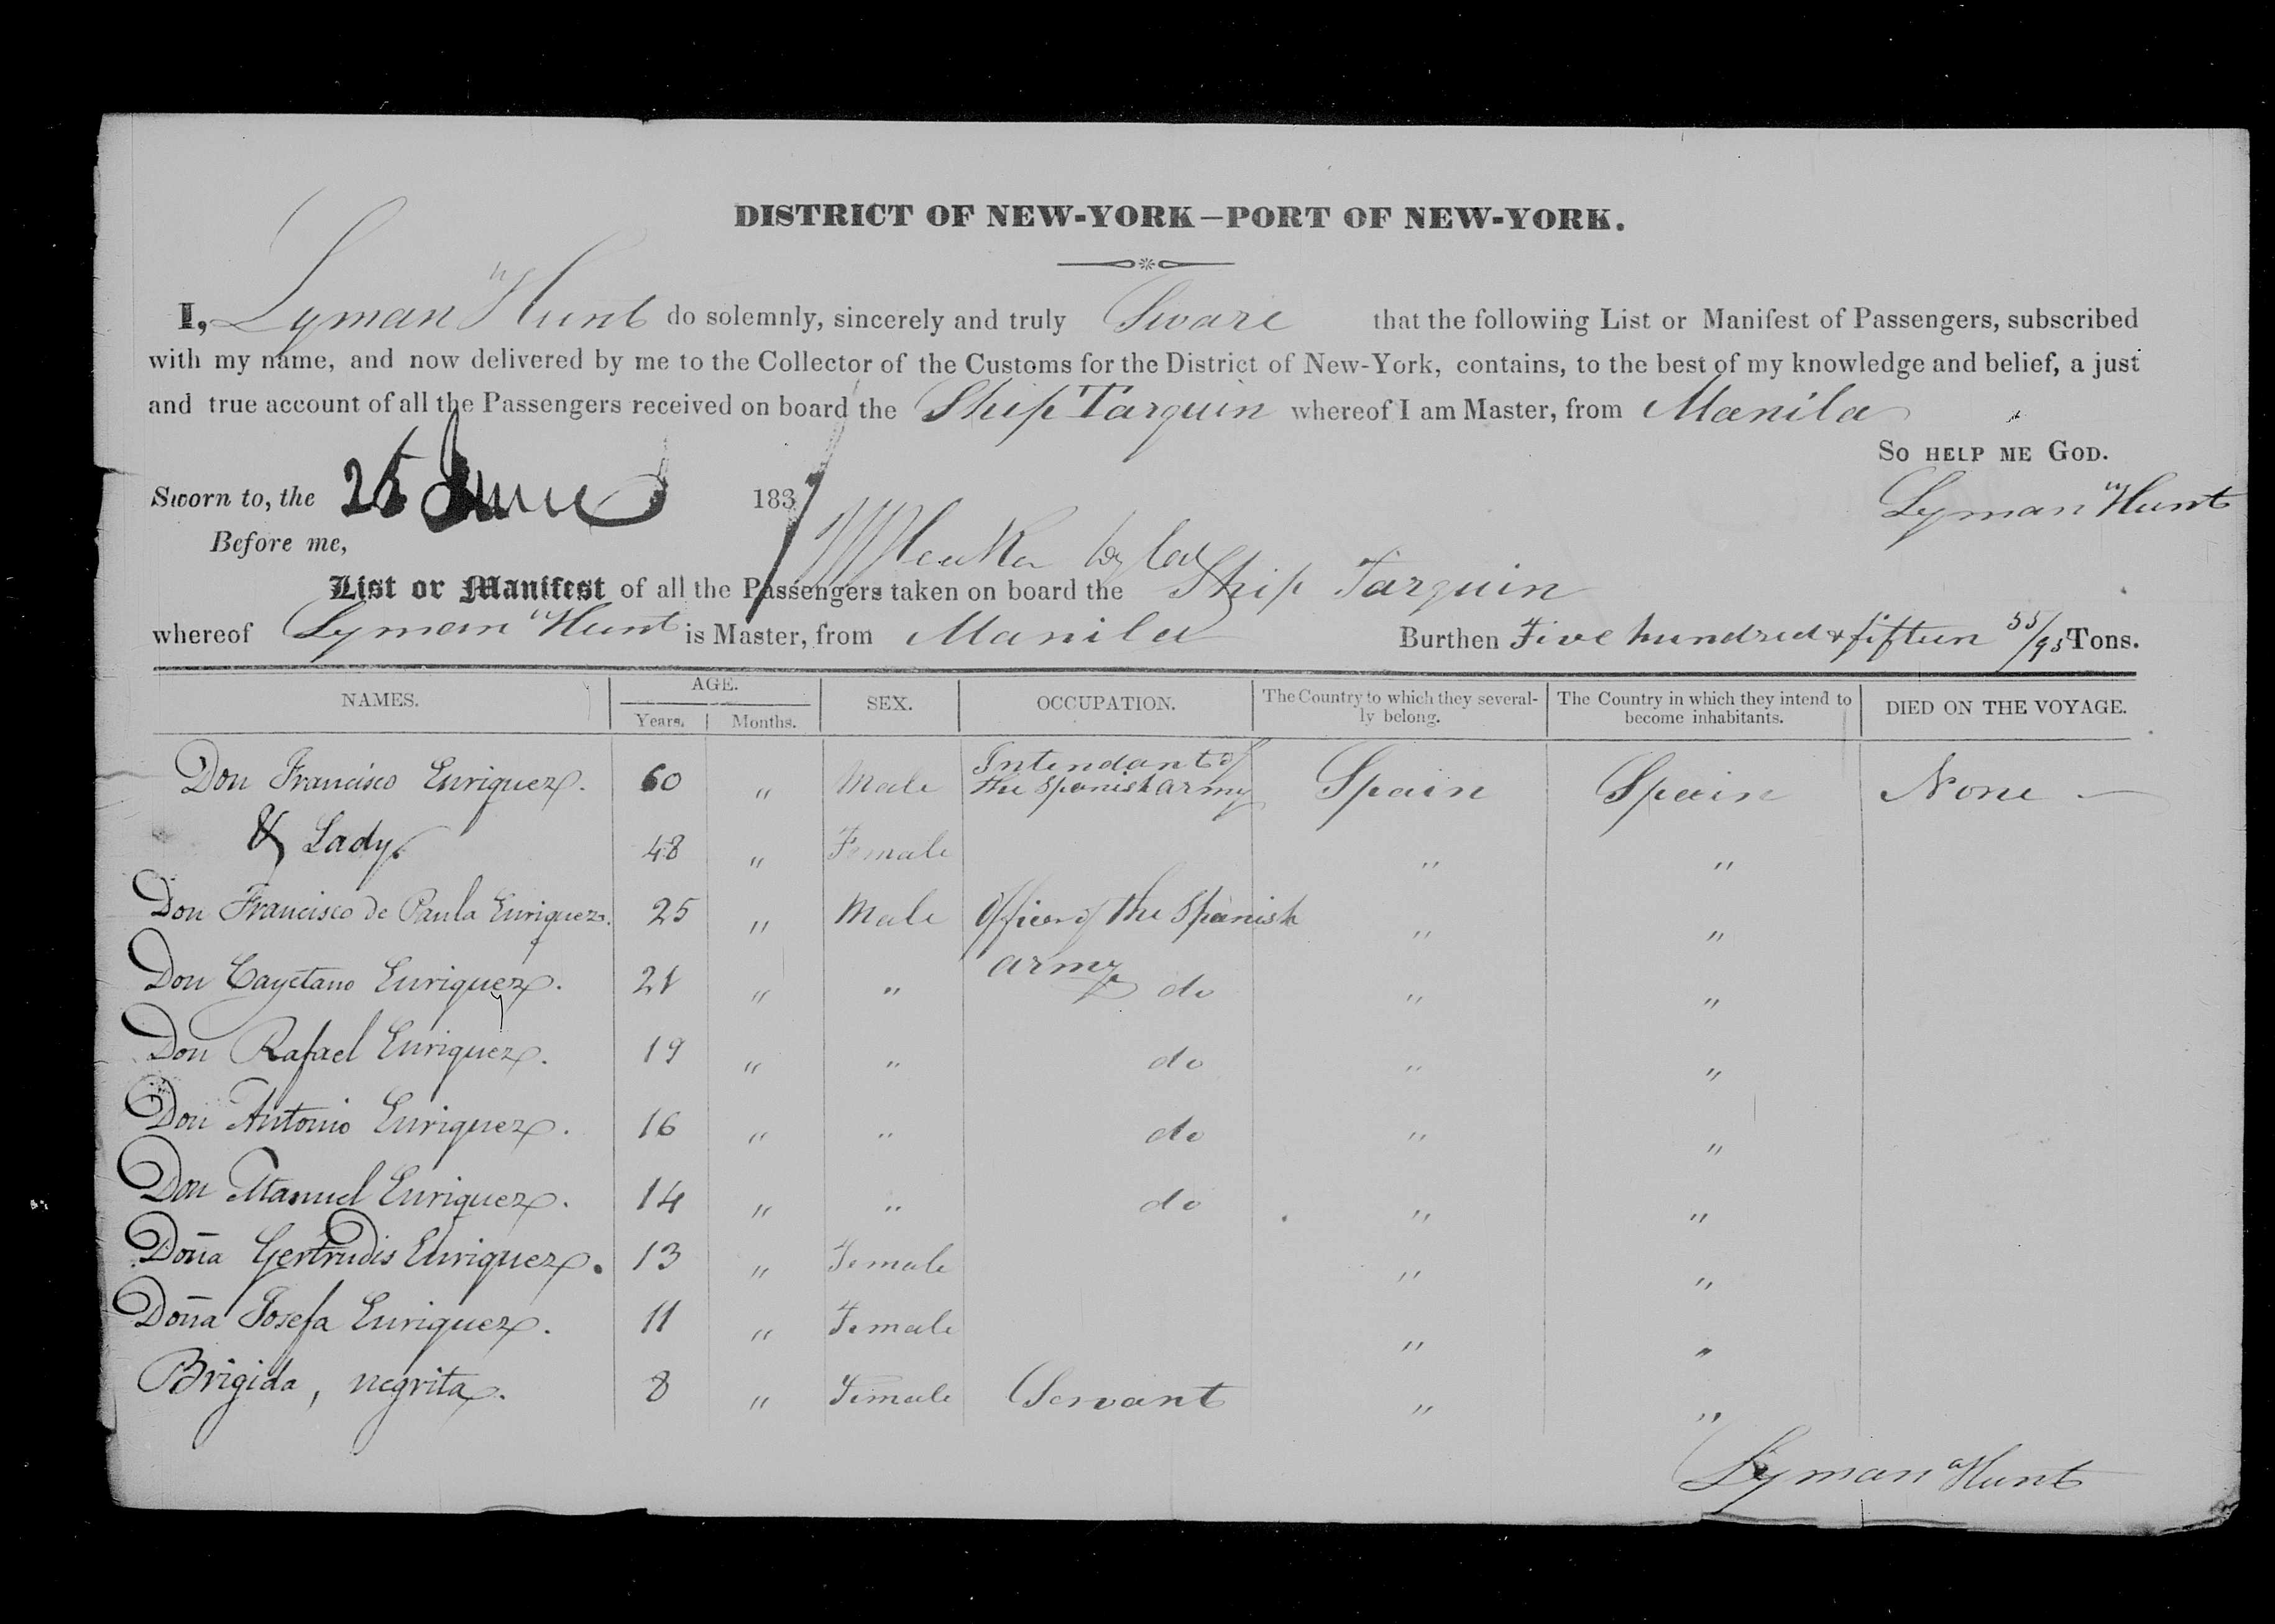 DISTRICT OF NEW-YORK—PORT OF NEW-YORK.
I, Lyman Hunt do solemnly, sincerely and truly Sware that the following List or Manifest of Passengers, subscribed
with my name, and now delivered by me to the Collector of the Customs for the District of New-York, contains, to the best of my knowledge and belief, a just
and true account of all the Passengers received on board the Ship Tarquin whereof I am Master, from Manila
So HELP ME GOD.
Sworn to, the 25 June 1837
Lyman Hunt
Before me,
List or Manifest of all the Passengers taken on board the Ship Tarquin
whereof Lyman Hunt is Master, from Manila Burthen Five hundred & fifteen 55/95 Tons.
NAMES. AGE. SEX. OCCUPATION. The Country to which they several- The Country in which they intend to DIED ON THE VOYAGE.
Years. Months. ly belong. become inhabitants.
Don Francisco Enriquez. 60 " Male Intendant of the Spanish army Spain Spain None —
& Lady. 48 " Female " "
Don Francisco de Paula Enriquez. 25 " Male Officer of the Spanish army " "
Don Cayetano Enriquez. 21 " " do " "
Don Rafael Enriquez. 19 " " do " "
Don Antonio Enriquez. 16 " " do " "
Don Manuel Enriquez. 14 " " do " "
Doña Gertrudis Enriquez. 13 " Female " "
Doña Josefa Enriquez. 11 " Female " "
Brigida, negrita. 8 " Female Servant " "
Lyman Hunt